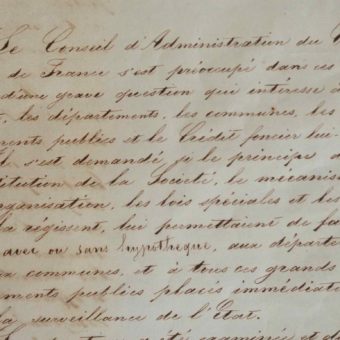 Le Conseil d'Administration du
de France s'est préoccupé dans ces
d'une grave question qui intéresse à
, les départements, les communes, les
ments publics et le Crédit foncier lui-
Il s'est demandé si le principe d
titution de la Société, le mécanis
rganisation, les lois spéciales et les
la régissent, lui permettaient de fa
avec ou sans hypothèque, aux départe
x communes, et à tous ces grands
ments publics placés immédiat
la surveillance de l'État.
été examinée et d